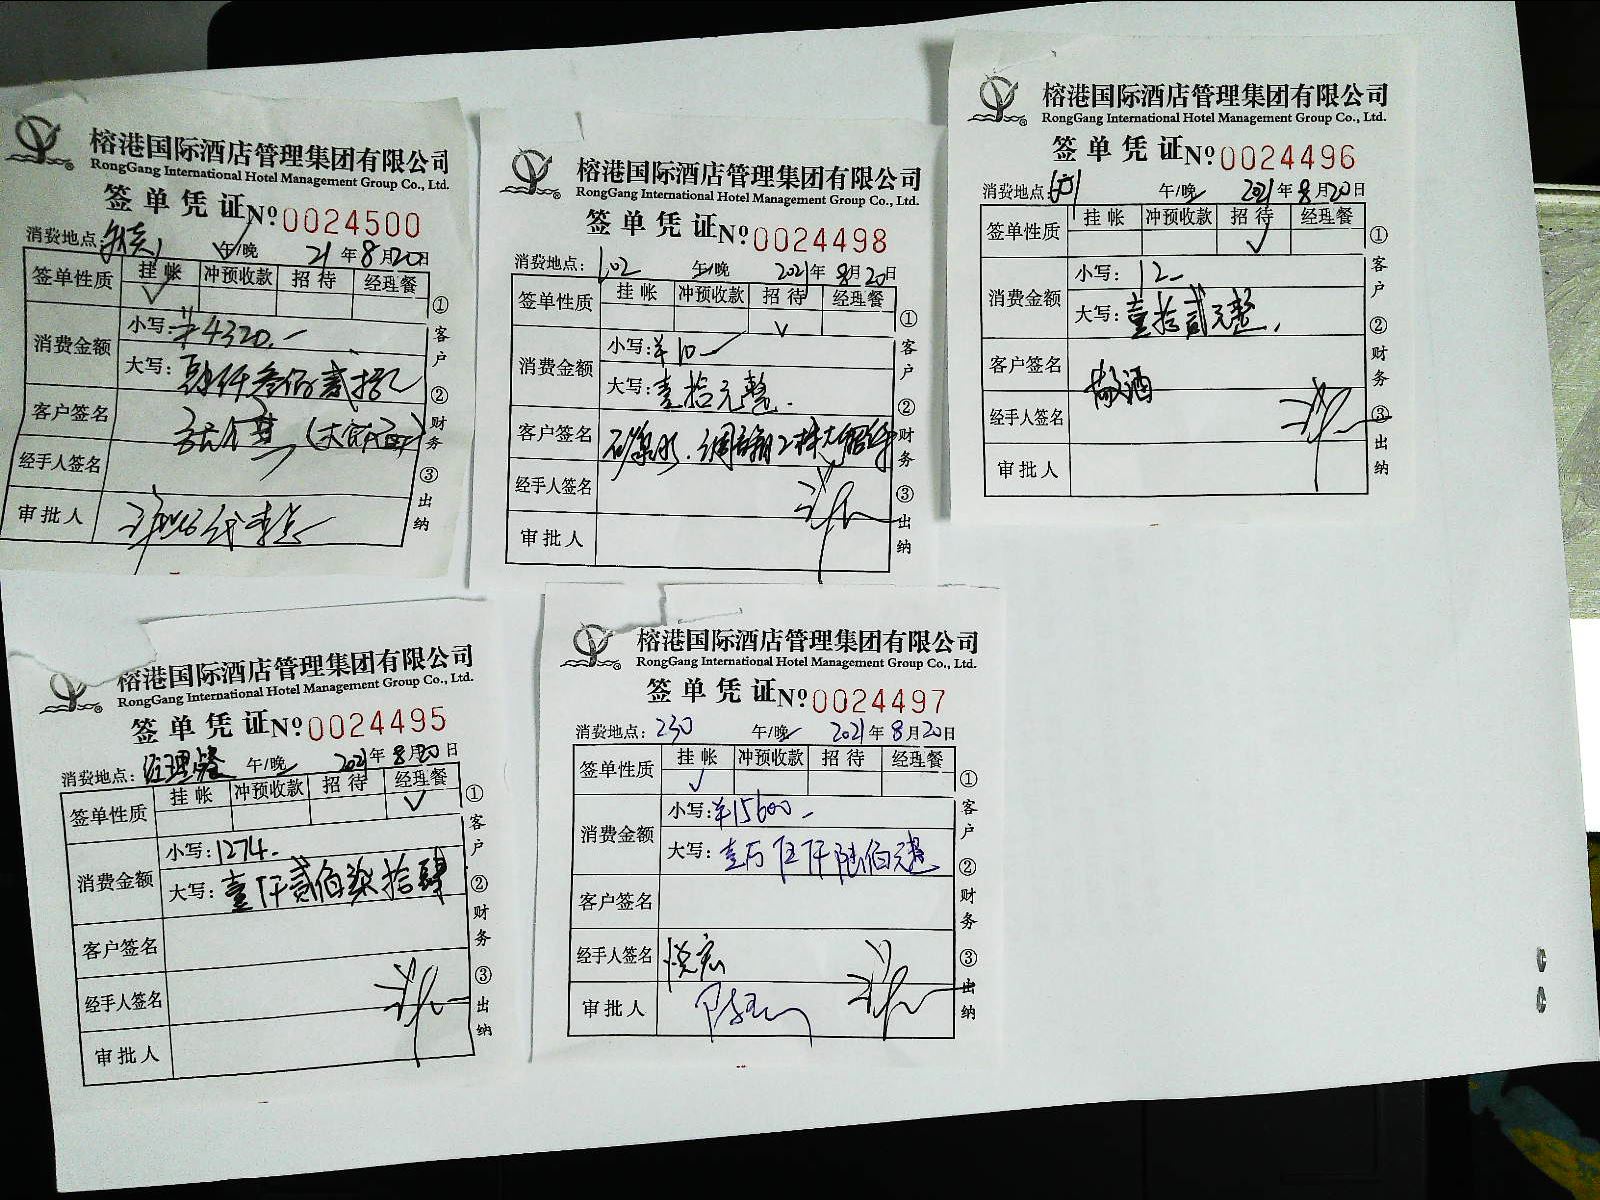 榕港国际酒店管理集团有限公司
RongGang International Hotel Management Group Co., Ltd.
签单凭证 Nº 0024500
消费地点: 午/晚 21年8月20日
签单性质 挂帐 冲预收款 招待 经理餐
✓
消费金额 小写: ¥4320.-
大写: 肆仟叁佰贰拾元
客户签名
经手人签名
审批人
①客户 ②财务 ③出纳
榕港国际酒店管理集团有限公司
RongGang International Hotel Management Group Co., Ltd.
签单凭证 Nº 0024498
消费地点: 602 午/晚 2021年8月20日
签单性质 挂帐 冲预收款 招待 经理餐
✓
消费金额 小写: ¥10-
大写: 壹拾元整.
客户签名 矿泉水.
经手人签名
审批人
①客户 ②财务 ③出纳
榕港国际酒店管理集团有限公司
RongGang International Hotel Management Group Co., Ltd.
签单凭证 Nº 0024496
消费地点: 601 午/晚 2021年8月20日
签单性质 挂帐 冲预收款 招待 经理餐
✓
消费金额 小写: 12-
大写: 壹拾贰元整.
客户签名 敬酒
经手人签名
审批人
①客户 ②财务 ③出纳
榕港国际酒店管理集团有限公司
RongGang International Hotel Management Group Co., Ltd.
签单凭证 Nº 0024495
消费地点: 经理餐 午/晚 2021年8月20日
签单性质 挂帐 冲预收款 招待 经理餐
✓
消费金额 小写: 1274.-
大写: 壹仟贰佰柒拾肆
客户签名
经手人签名
审批人
①客户 ②财务 ③出纳
榕港国际酒店管理集团有限公司
RongGang International Hotel Management Group Co., Ltd.
签单凭证 Nº 0024497
消费地点: 230 午/晚 2021年8月20日
签单性质 挂帐 冲预收款 招待 经理餐
✓
消费金额 小写: ¥15600.-
大写: 壹万伍仟陆佰元整
客户签名
经手人签名 悦宏
审批人
①客户 ②财务 ③出纳